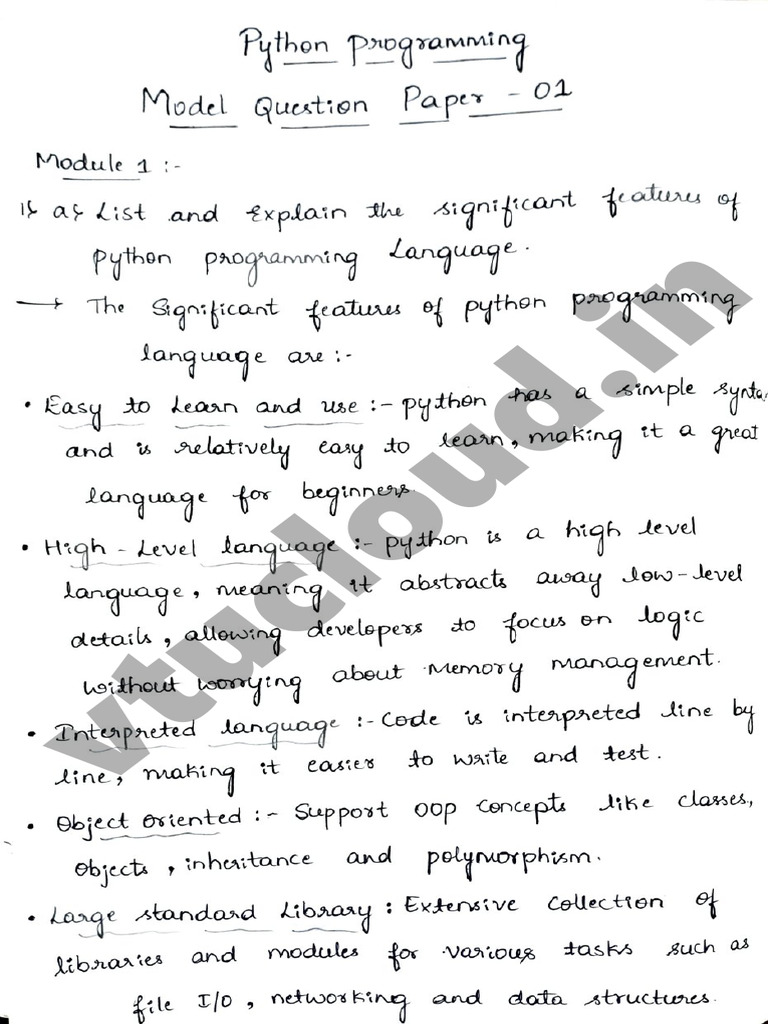 Python Programming
Model Question Paper - 01
Module 1 :-
1} a} List and Explain the significant features of
python programming Language.
→ The Significant features of python programming
language are :-
• Easy to Learn and use :- python has a simple synta
and is relatively easy to learn, making it a great
language for beginners.
• High - Level language :- python is a high level
language, meaning it abstracts away low-level
details, allowing developers to focus on logic
without worrying about Memory management.
• Interpreted language :- Code is interpreted line by
line, making it easier to write and test.
• Object oriented :- Support OOP concepts like classes,
objects, inheritance and polymorphism.
• Large standard Library : Extensive Collection of
libraries and modules for various tasks such as
file I/O, networking and data structures.
vtucloud.in